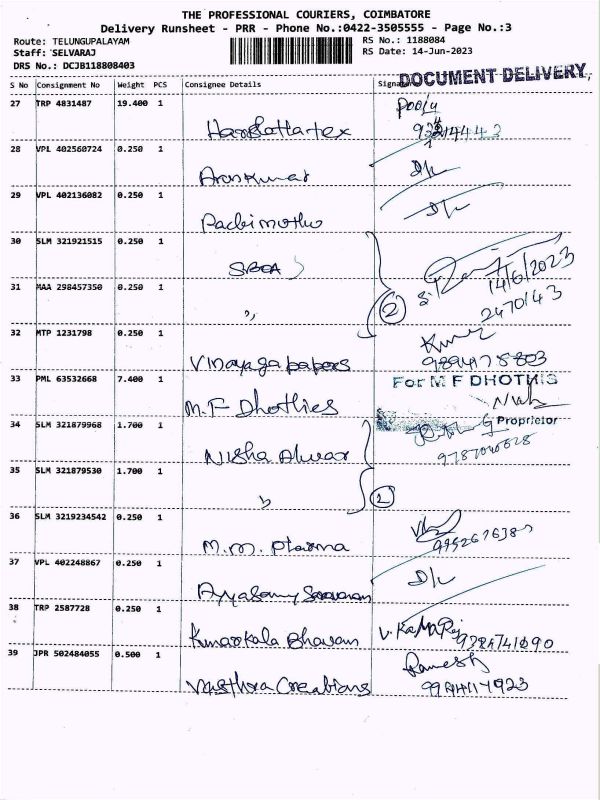 THE PROFESSIONAL COURIERS, COIMBATORE
Delivery Runsheet - PRR - Phone No.:0422-3505555 - Page No.:3
Route: TELUNGUPALAYAM RS No.: 1188084
Staff: SELVARAJ RS Date: 14-Jun-2023
DRS No.: DCJB118808403
DOCUMENT DELIVERY,
S No Consignment No Weight PCS Consignee Details Signature
27 TRP 4831487 19.400 1
28 VPL 402560724 0.250 1
Arunkumar D/L
29 VPL 402136082 0.250 1
Pachimuthu D/L
30 SLM 321921515 0.250 1
SBOA 14/6/2023
31 MAA 298457350 0.250 1
" 2 2470143
32 MTP 1231798 0.250 1 Kumar
Vinayaga papers 9894178803
33 PML 63532668 7.400 1 For M F DHOTHIS
M.F Dhothies
34 SLM 321879968 1.700 1 Proprietor
Nisha Alwar
35 SLM 321879530 1.700 1
" 2
36 SLM 3219234542 0.250 1
M.M. Pharma
37 VPL 402248867 0.250 1 D/L
Ayyasamy Saravanan
38 TRP 2587728 0.250 1
Kumarakala Bhavan V. Kamaraj
39 JPR 502484055 0.500 1 Ramesh
Vasthra Creations